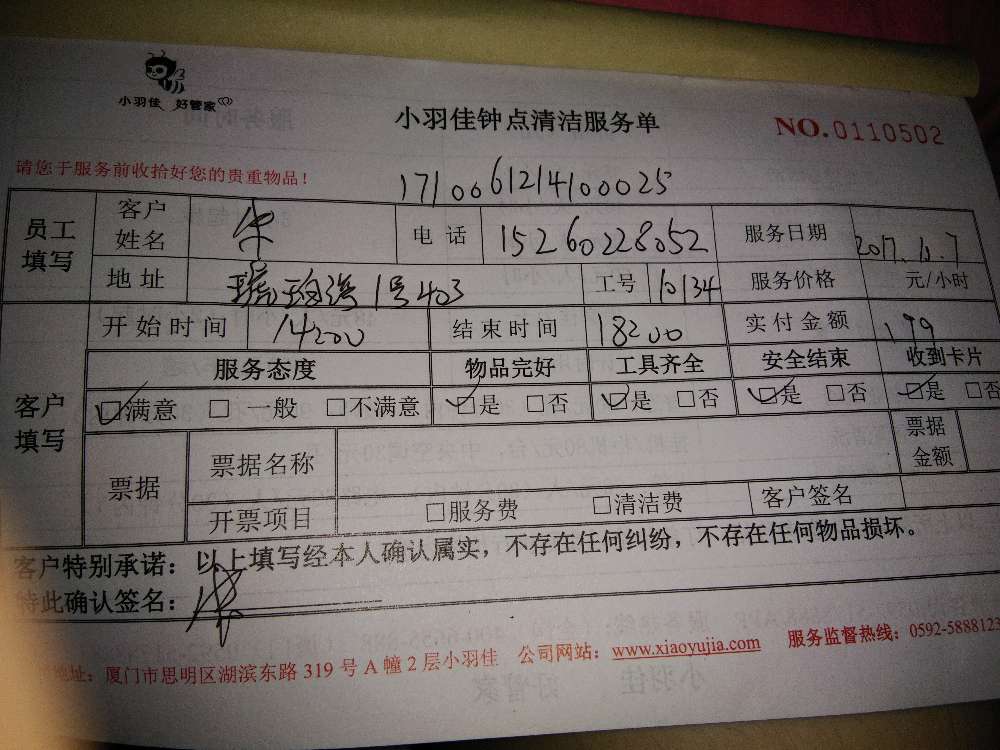 小羽佳 好管家
小羽佳钟点清洁服务单
NO.0110502
请您于服务前收拾好您的贵重物品！
1710061214100025
员工填写 客户姓名 电话 15260228052 服务日期 2017.10.7
地址 1号403 工号 10134 服务价格 元/小时
客户填写 开始时间 14:00 结束时间 18:00 实付金额 179
服务态度 物品完好 工具齐全 安全结束 收到卡片
□满意 □一般 □不满意 □是 □否 □是 □否 □是 □否 □是 □否
票据 票据名称 票据金额
开票项目 □服务费 □清洁费 客户签名
客户特别承诺：以上填写经本人确认属实，不存在任何纠纷，不存在任何物品损坏。
特此确认签名：
地址：厦门市思明区湖滨东路 319 号 A 幢 2 层小羽佳 公司网站：www.xiaoyujia.com 服务监督热线：0592-5888123